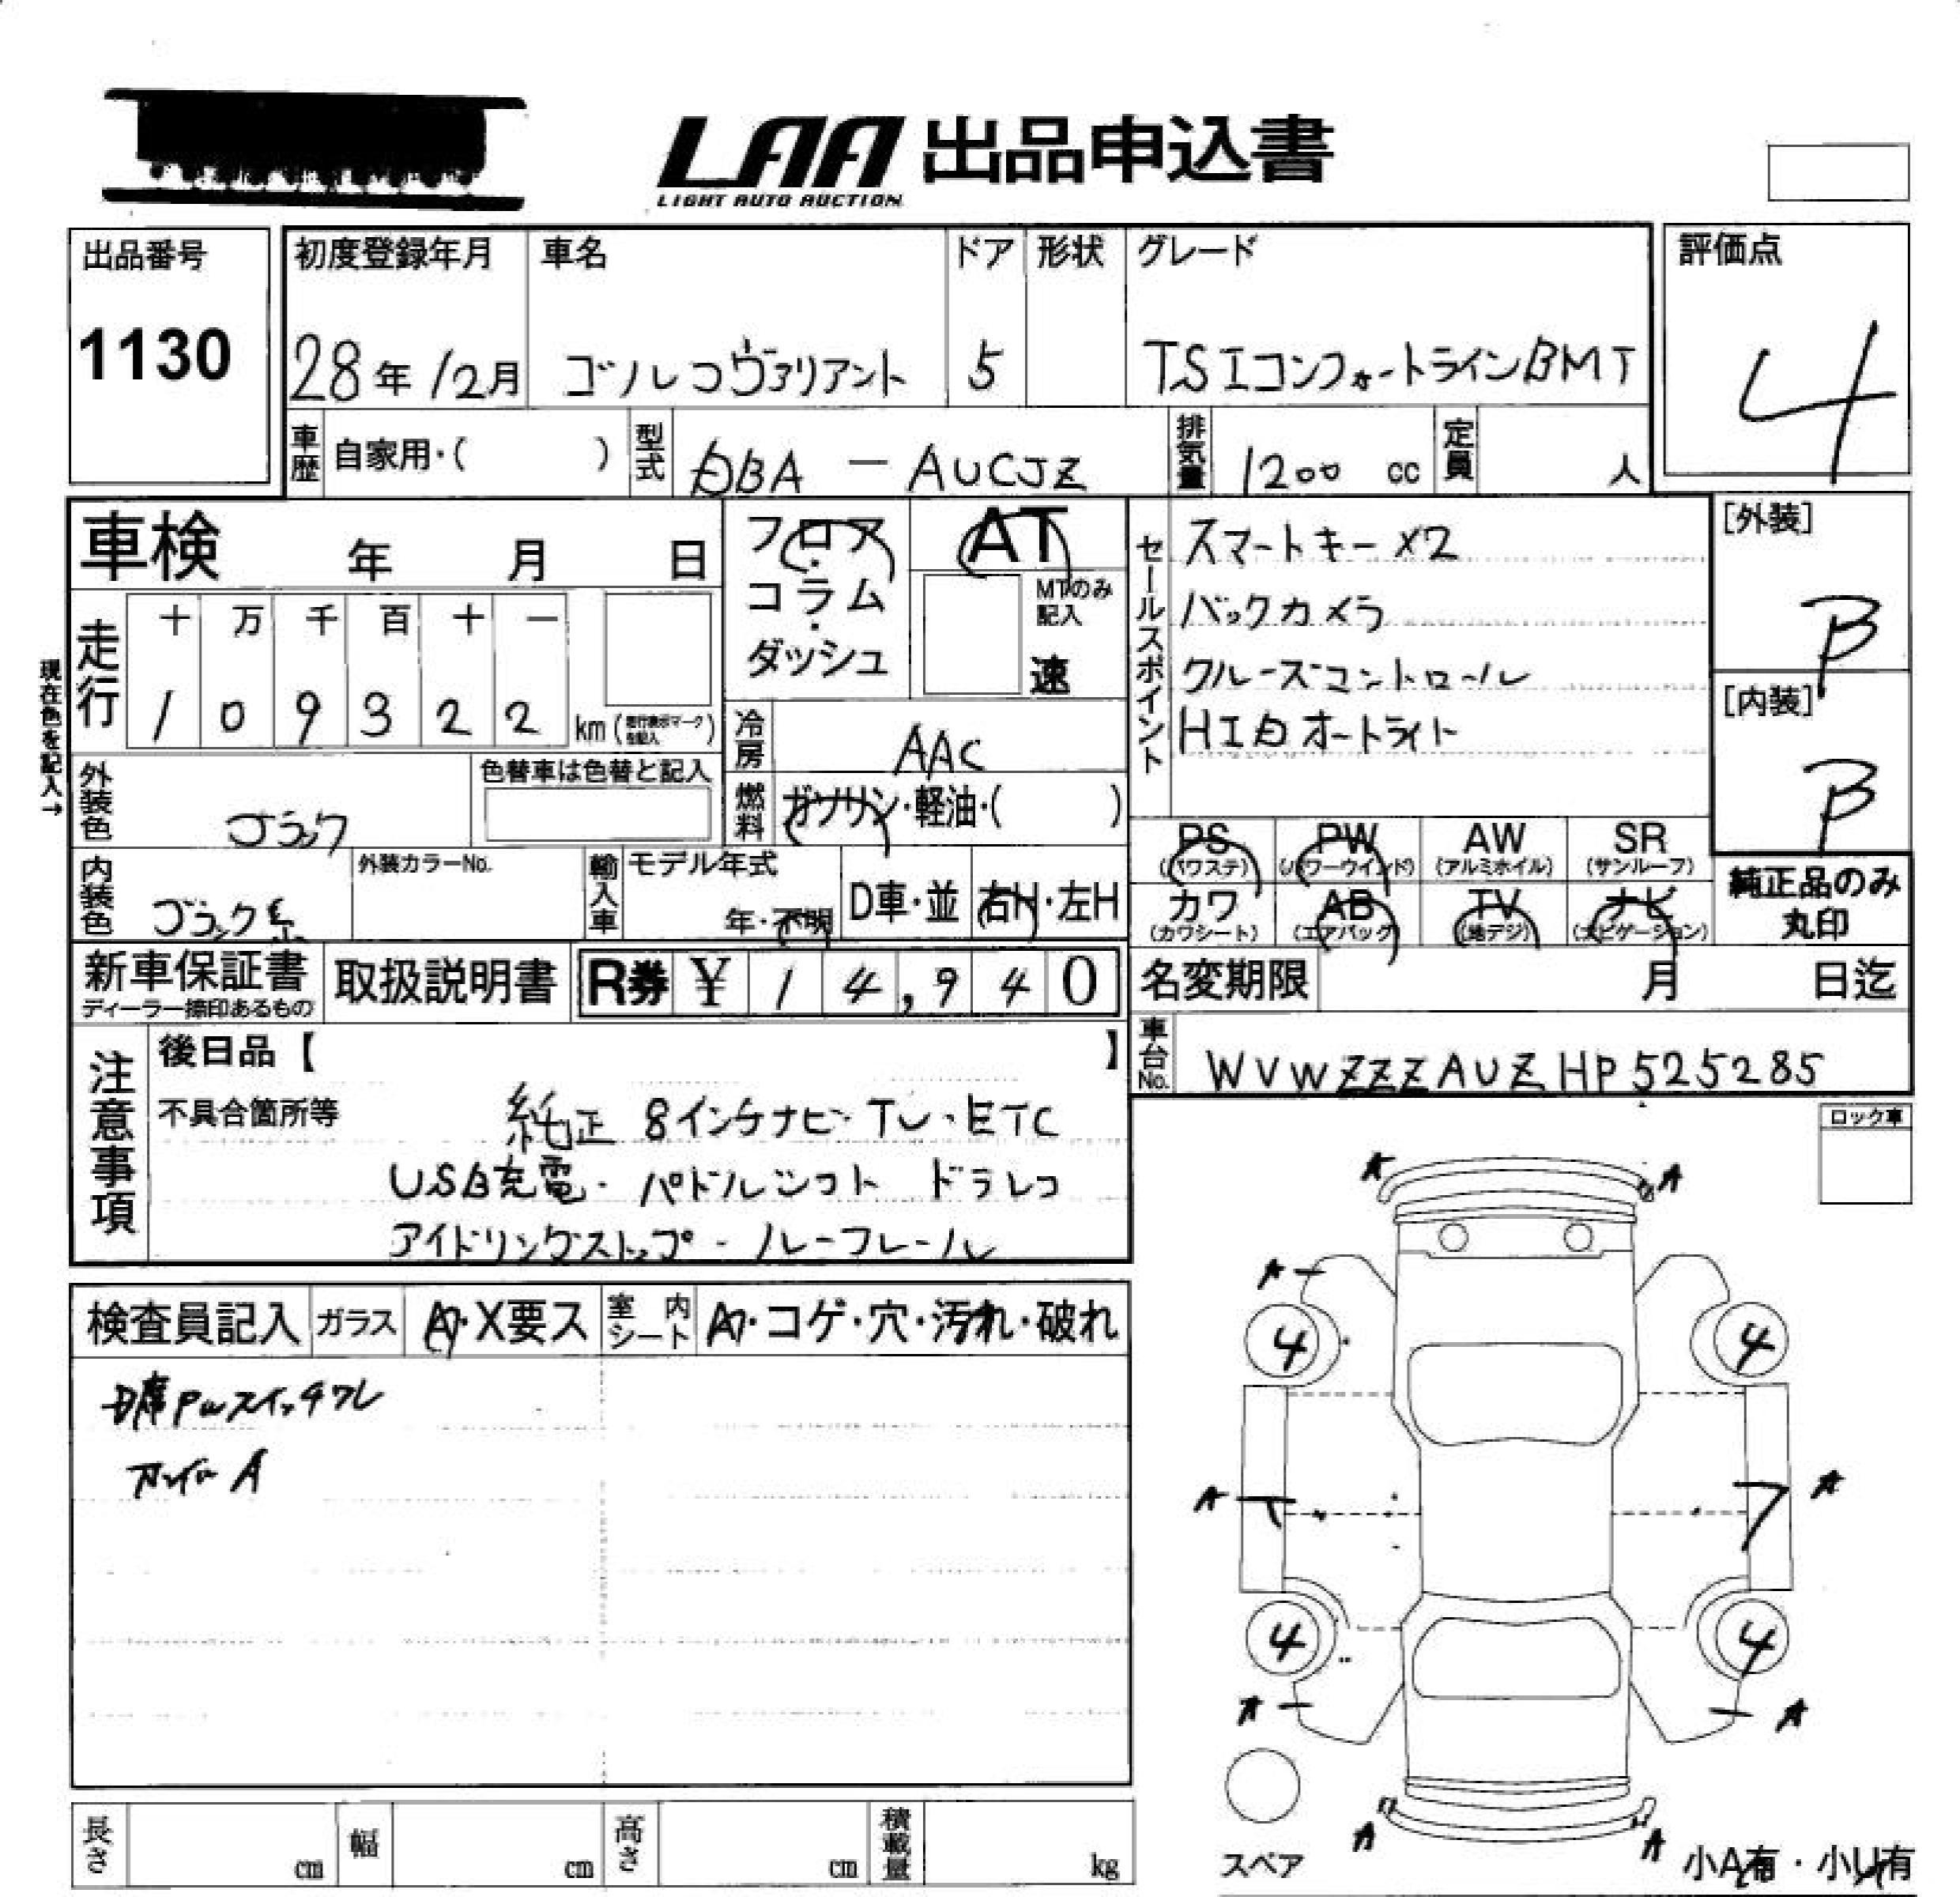 LAA 出品申込書
LIGHT AUTO AUCTION
出品番号
1130
初度登録年月
28年12月
車名
ゴルフヴァリアント
ドア
5
形状
グレード
TSIコンフォートラインBMT
評価点
4
車歴 自家用・( )
型式 DBA - AUCJZ
排気量 1200 cc
定員 人
車検 年 月 日
フロア・コラム・ダッシュ
AT
MTのみ記入
速
セールスポイント
スマートキー×2
バックカメラ
クルーズコントロール
HIDオートライト
[外装]
B
[内装]
B
現在色を記入→
走行
十 万 千 百 十 一
1 0 9 3 2 2 km
冷房 AAC
燃料 ガソリン・軽油・( )
外装色 ブラック
色替車は色替と記入
内装色 ブラック系
外装カラーNo.
輸入車 モデル年式
年・不明
D車・並
右H・左H
PS (パワステ)
PW (パワーウインド)
AW (アルミホイル)
SR (サンルーフ)
カワ (カワシート)
AB (エアバック)
TV (地デジ)
ナビ (ナビゲーション)
純正品のみ丸印
新車保証書
ディーラー捺印あるもの
取扱説明書
R券 ¥ 14,940
名変期限 月 日迄
車台No. WVWZZZAUZHP525285
注意事項
後日品【 】
不具合箇所等
純正 8インチナビ・TV・ETC
USB充電・パドルシフト ドラレコ
アイドリングストップ・ルーフレール
ロック車
検査員記入
ガラス A・X要ス
室内シート A・コゲ・穴・汚れ・破れ
D席PWスイッチワレ
A
A A
A
4 4
A A
4 4
A A
A A
スペア
小A有・小U有
長さ cm
幅 cm
高さ cm
積載量 kg